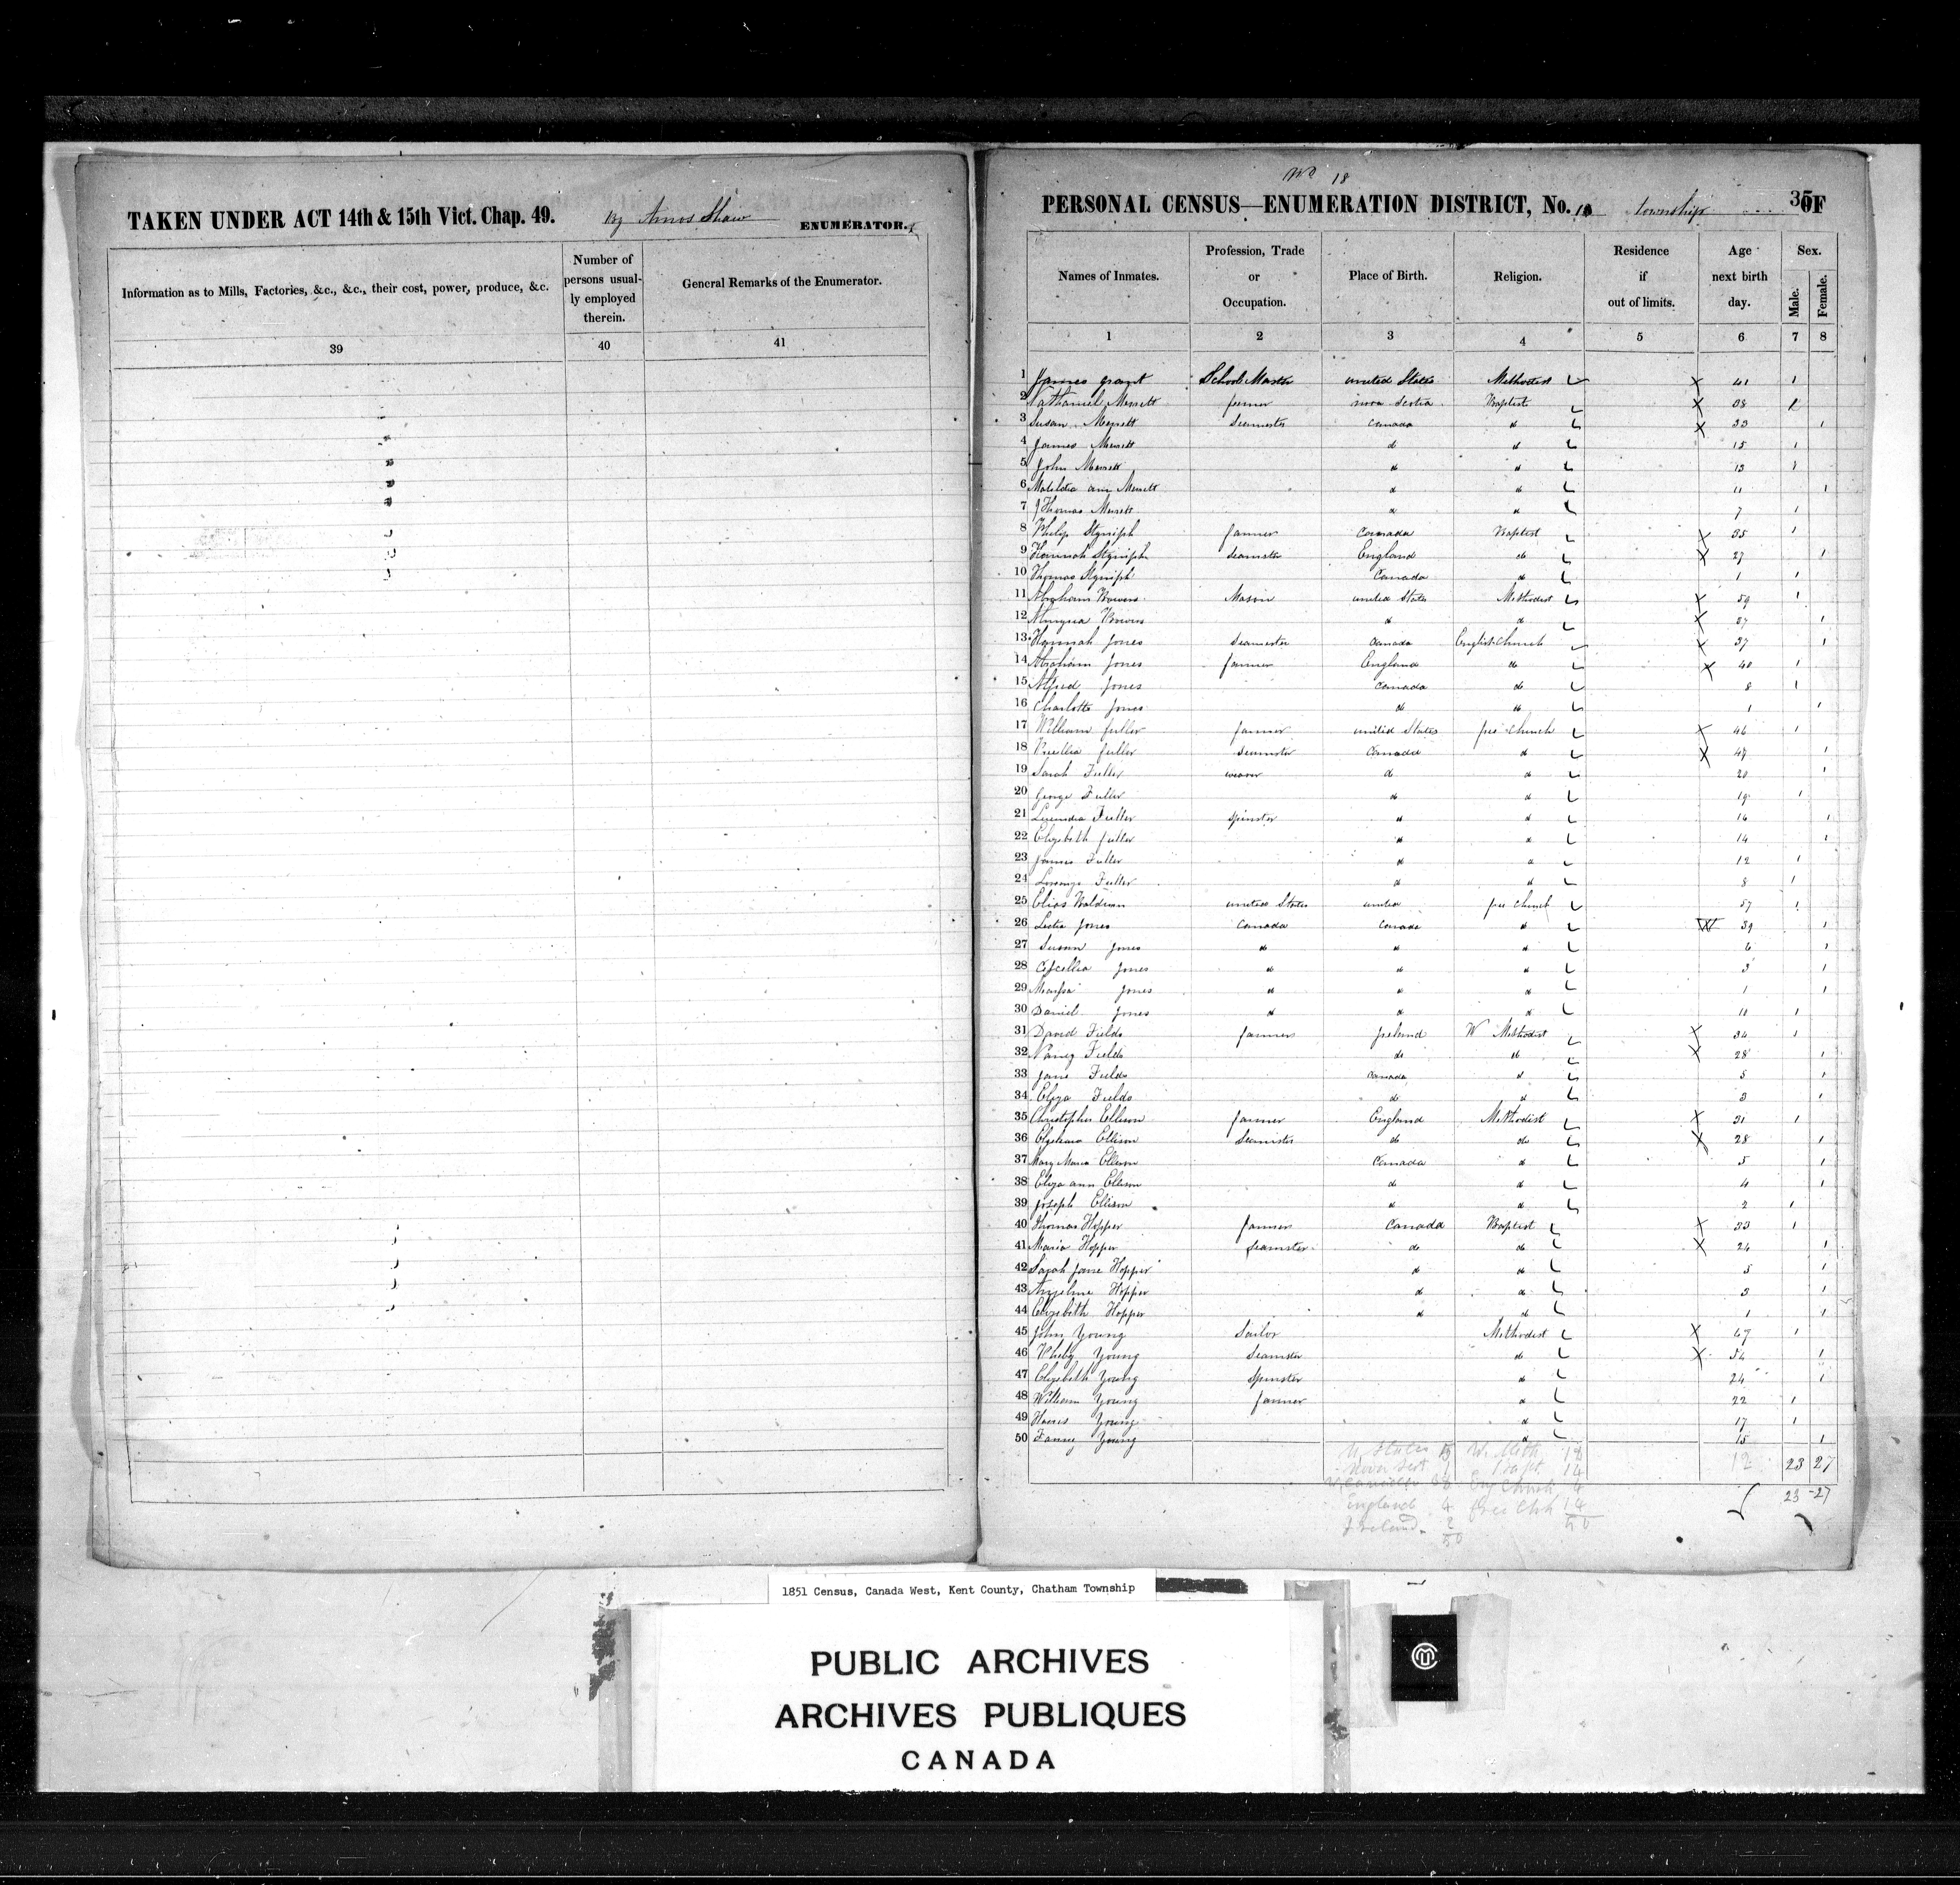 TAKEN UNDER ACT 14th & 15th Vict. Chap. 49. by Amos Shaw ENUMERATOR.
Information as to Mills, Factories, &c., &c., their cost, power, produce, &c.
Number of persons usual-
ly employed therein.
General Remarks of the Enumerator.
39 40 41
No 18
PERSONAL CENSUS—ENUMERATION DISTRICT, No. township 35 OF
Names of Inmates.
Profession, Trade or Occupation.
Place of Birth.
Religion.
Residence if out of limits.
Age next birth day.
Sex.
Male. Female.
1 2 3 4 5 6 7 8
1 James grant School Master united States Methodist 41 1
2 Nathaniel Merrett farmer nova Scotia Baptist 38
3 Susan Merrett Seamster Canada d 33 1
4 James Merrett d d 15 1
5 John Merrett d d 13 1
6 Matildia ann Merrett d d 11 1
7 Thomas Merrett d d 7 1
8 Philip farmer Canada Baptist 35 1
9 Hannah Seamster England do 27 1
10 Thomas Canada d 1 1
11 Abraham Bowers Mason united States Methodist 59 1
12 Bowers d d 27 1
13 Hannah Jones Seamster Canada English Church 37 1
14 Abraham Jones farmer England do 40 1
15 Alfred Jones Canada do 8 1
16 Charlotte Jones do do 1 1
17 William fuller farmer united States free Church 46 1
18 fuller Seamster Canada d 47 1
19 Sarah Fuller weaver d d 20 1
20 George Fuller d d 19 1
21 Lucindia Fuller spinster d d 16 1
22 Elizebeth fuller d d 14 1
23 James Fuller d d 12 1
24 Lorenzo Fuller d d 8 1
25 Elias united States united free Church 57 1
26 Jones Canada Canada d 39 1
27 Susan Jones d d d 6 1
28 Jones d d d 3 1
29 Jones d d d 1 1
30 Daniel Jones d d d 11 1
31 David Fields farmer Ireland W Methodist 34 1
32 Nancy Fields do do 28 1
33 Jane Fields Canada d 5 1
34 Eliza Fields do d 3 1
35 Christopher Ellison farmer England Methodist 31 1
36 Ellison Seamster do do 28 1
37 Mary Maria Ellison Canada d 5 1
38 Eliza ann Ellison d d 4 1
39 Joseph Ellison d d 2 1
40 Thomas Hopper farmer Canada Baptist 33 1
41 Maria Hopper Seamster do do 24 1
42 Sarah Jane Hopper do do 5 1
43 Angeline Hopper d d 3 1
44 Elizebeth Hopper d d 1 1
45 John Young Sailor Methodist 67 1
46 Pheby Young Seamster do 54 1
47 Elizebeth Young Spinster d 24 1
48 William Young farmer d 22 1
49 Young d 17 1
50 Fanny Young d 15 1
U. States W. Meth 18
Nova Scot 1 Bapt. 14
Eng Church 4
England 4 free Chh 14
Ireland 2 50
50
12 23 27
23 -27
1851 Census, Canada West, Kent County, Chatham Township
PUBLIC ARCHIVES
ARCHIVES PUBLIQUES
CANADA